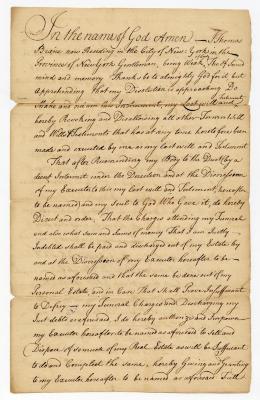 In the name of God Amen — I Thomas
now Residing in the City of New York in the
Province of New York Gentleman, being Weak, tho of Sound
mind and memory Thanks be to almighty God for it but
apprehending that my Dissolution is approaching Do
Make and ordain this Instrument, my Last will and Testament
hereby Revoking and Disallowing all other former Will
and Wills & Testaments that has at any time heretofore been
made and executed by me as my last will and Testament
That after Surrendering my Body to the Dust by a
decent Interment under the Direction and at the Discression
of my Executor to this my last will and Testament hereafter
to be named and my Soul to God Who Gave it, do hereby
Direct and order, That the Charges attending my Funeral
and also what sum and Sums of money That I am Justly
Indebted shall be paid and discharged out of my Estate by
and at the Discression of my Executor hereafter to be
named as aforesaid and that the same be done out of my
Personal Estate, and in Case That Shall prove Insufficient
to Defray — my Funeral Charges and Discharging my
Just debts as aforesaid, I do hereby authorize and Impower
my Executor hereafter to be named as aforesaid to Sell and
Dispose of so much of my Real Estate as will be Sufficient
to do and Compleat the same, hereby Giving and Granting
to my Executor hereafter to be named as aforesaid Full